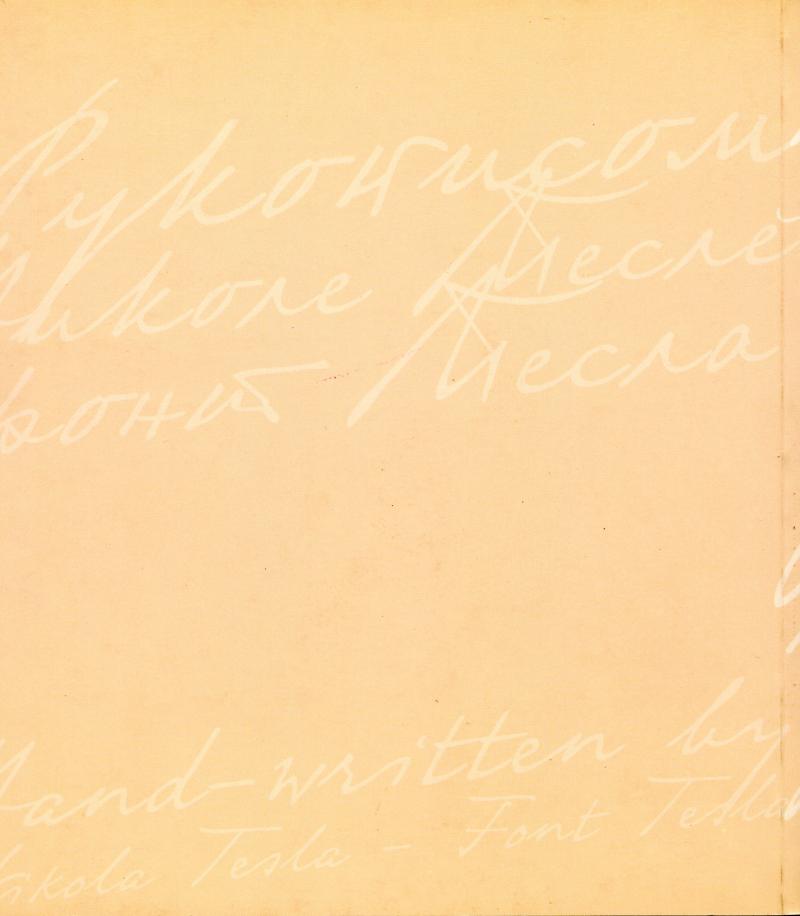 Рукописом
Николе Тесле
фонт Тесла
Hand-written by
Nikola Tesla - Font Tesla